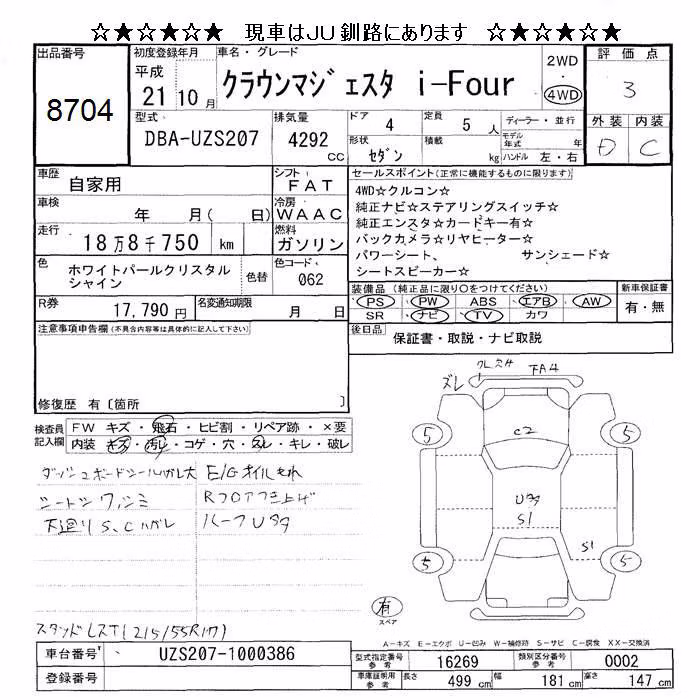 ☆★☆★☆★ 現車はＪＵ釧路にあります ☆★☆★☆★
出品番号
8704
初度登録年月
平成
21 10 月
車名・グレード
クラウンマジェスタ i-Four
2WD
・
4WD
評価点
3
型式
DBA-UZS207
排気量
4292
CC
ドア
4
定員
5 人
ディーラー・並行
モデル年式 年
形状
セダン
積載
kg
ハンドル 左・右
外装 内装
D C
車歴
自家用
シフト
FAT
車検
年 月( 日)
冷房
WAAC
走行
18万8千750 km
燃料
ガソリン
色
ホワイトパールクリスタル
シャイン
色替
色コード
062
R券
17,790円
名変通知期限
月 日
セールスポイント(正常に機能するものに限ります)
4WD☆クルコン☆
純正ナビ☆ステアリングスイッチ☆
純正エンスタ☆カードキー有☆
バックカメラ☆リヤヒーター☆
パワーシート、 サンシェード☆
シートスピーカー☆
装備品 (純正品に限り○をつけてください)
PS PW ABS エアB AW
SR ナビ TV カワ
新車保証書
有・無
後日品
保証書・取説・ナビ取説
注意事項申告欄 (不具合内容等は具体的に記入して下さい)
修復歴 有〔箇所 〕
検査員
記入欄
FW キズ・飛石・ヒビ割・リペア跡・×要
内装 キズ・汚レ・コゲ・穴・スレ・キレ・破レ
ダッシュボードシールハガレ大
E/Gオイルモれ
シートシワ,シミ
Rフロアつき上げ
下廻りS、Cハガレ
ルーフUタタ
スタッドレスT(215/55R17)
ズレ
クレ欠け
FA4
5
5
5
5
C2
Uタタ
S1
S1
有
スペア
A－キズ E－エクボ U－凹み W－補修跡 S－サビ C－腐食 XX－交換済
車台番号
UZS207-1000386
登録番号
型式指定番号
参考
16269
類別区分番号
参考
0002
車庫証明用
参考
長さ
499 cm
幅
181 cm
高さ
147 cm